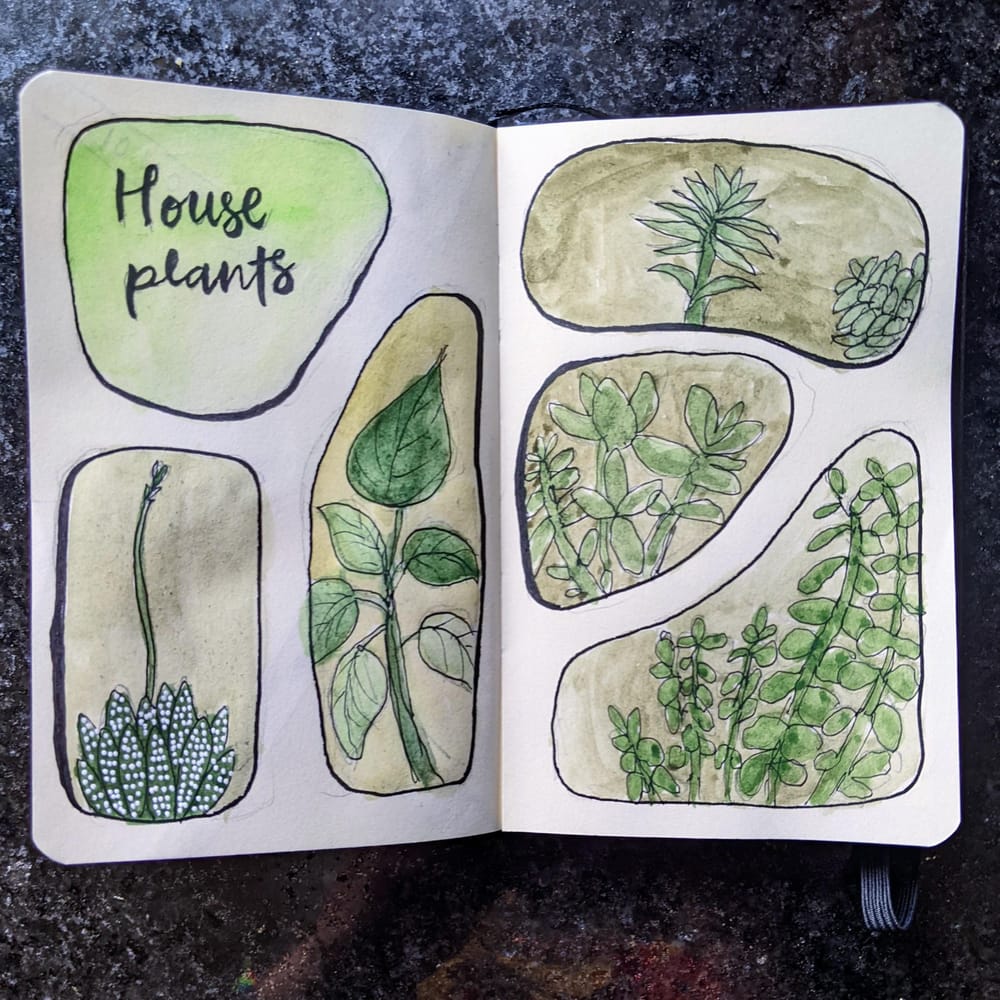 House
plants